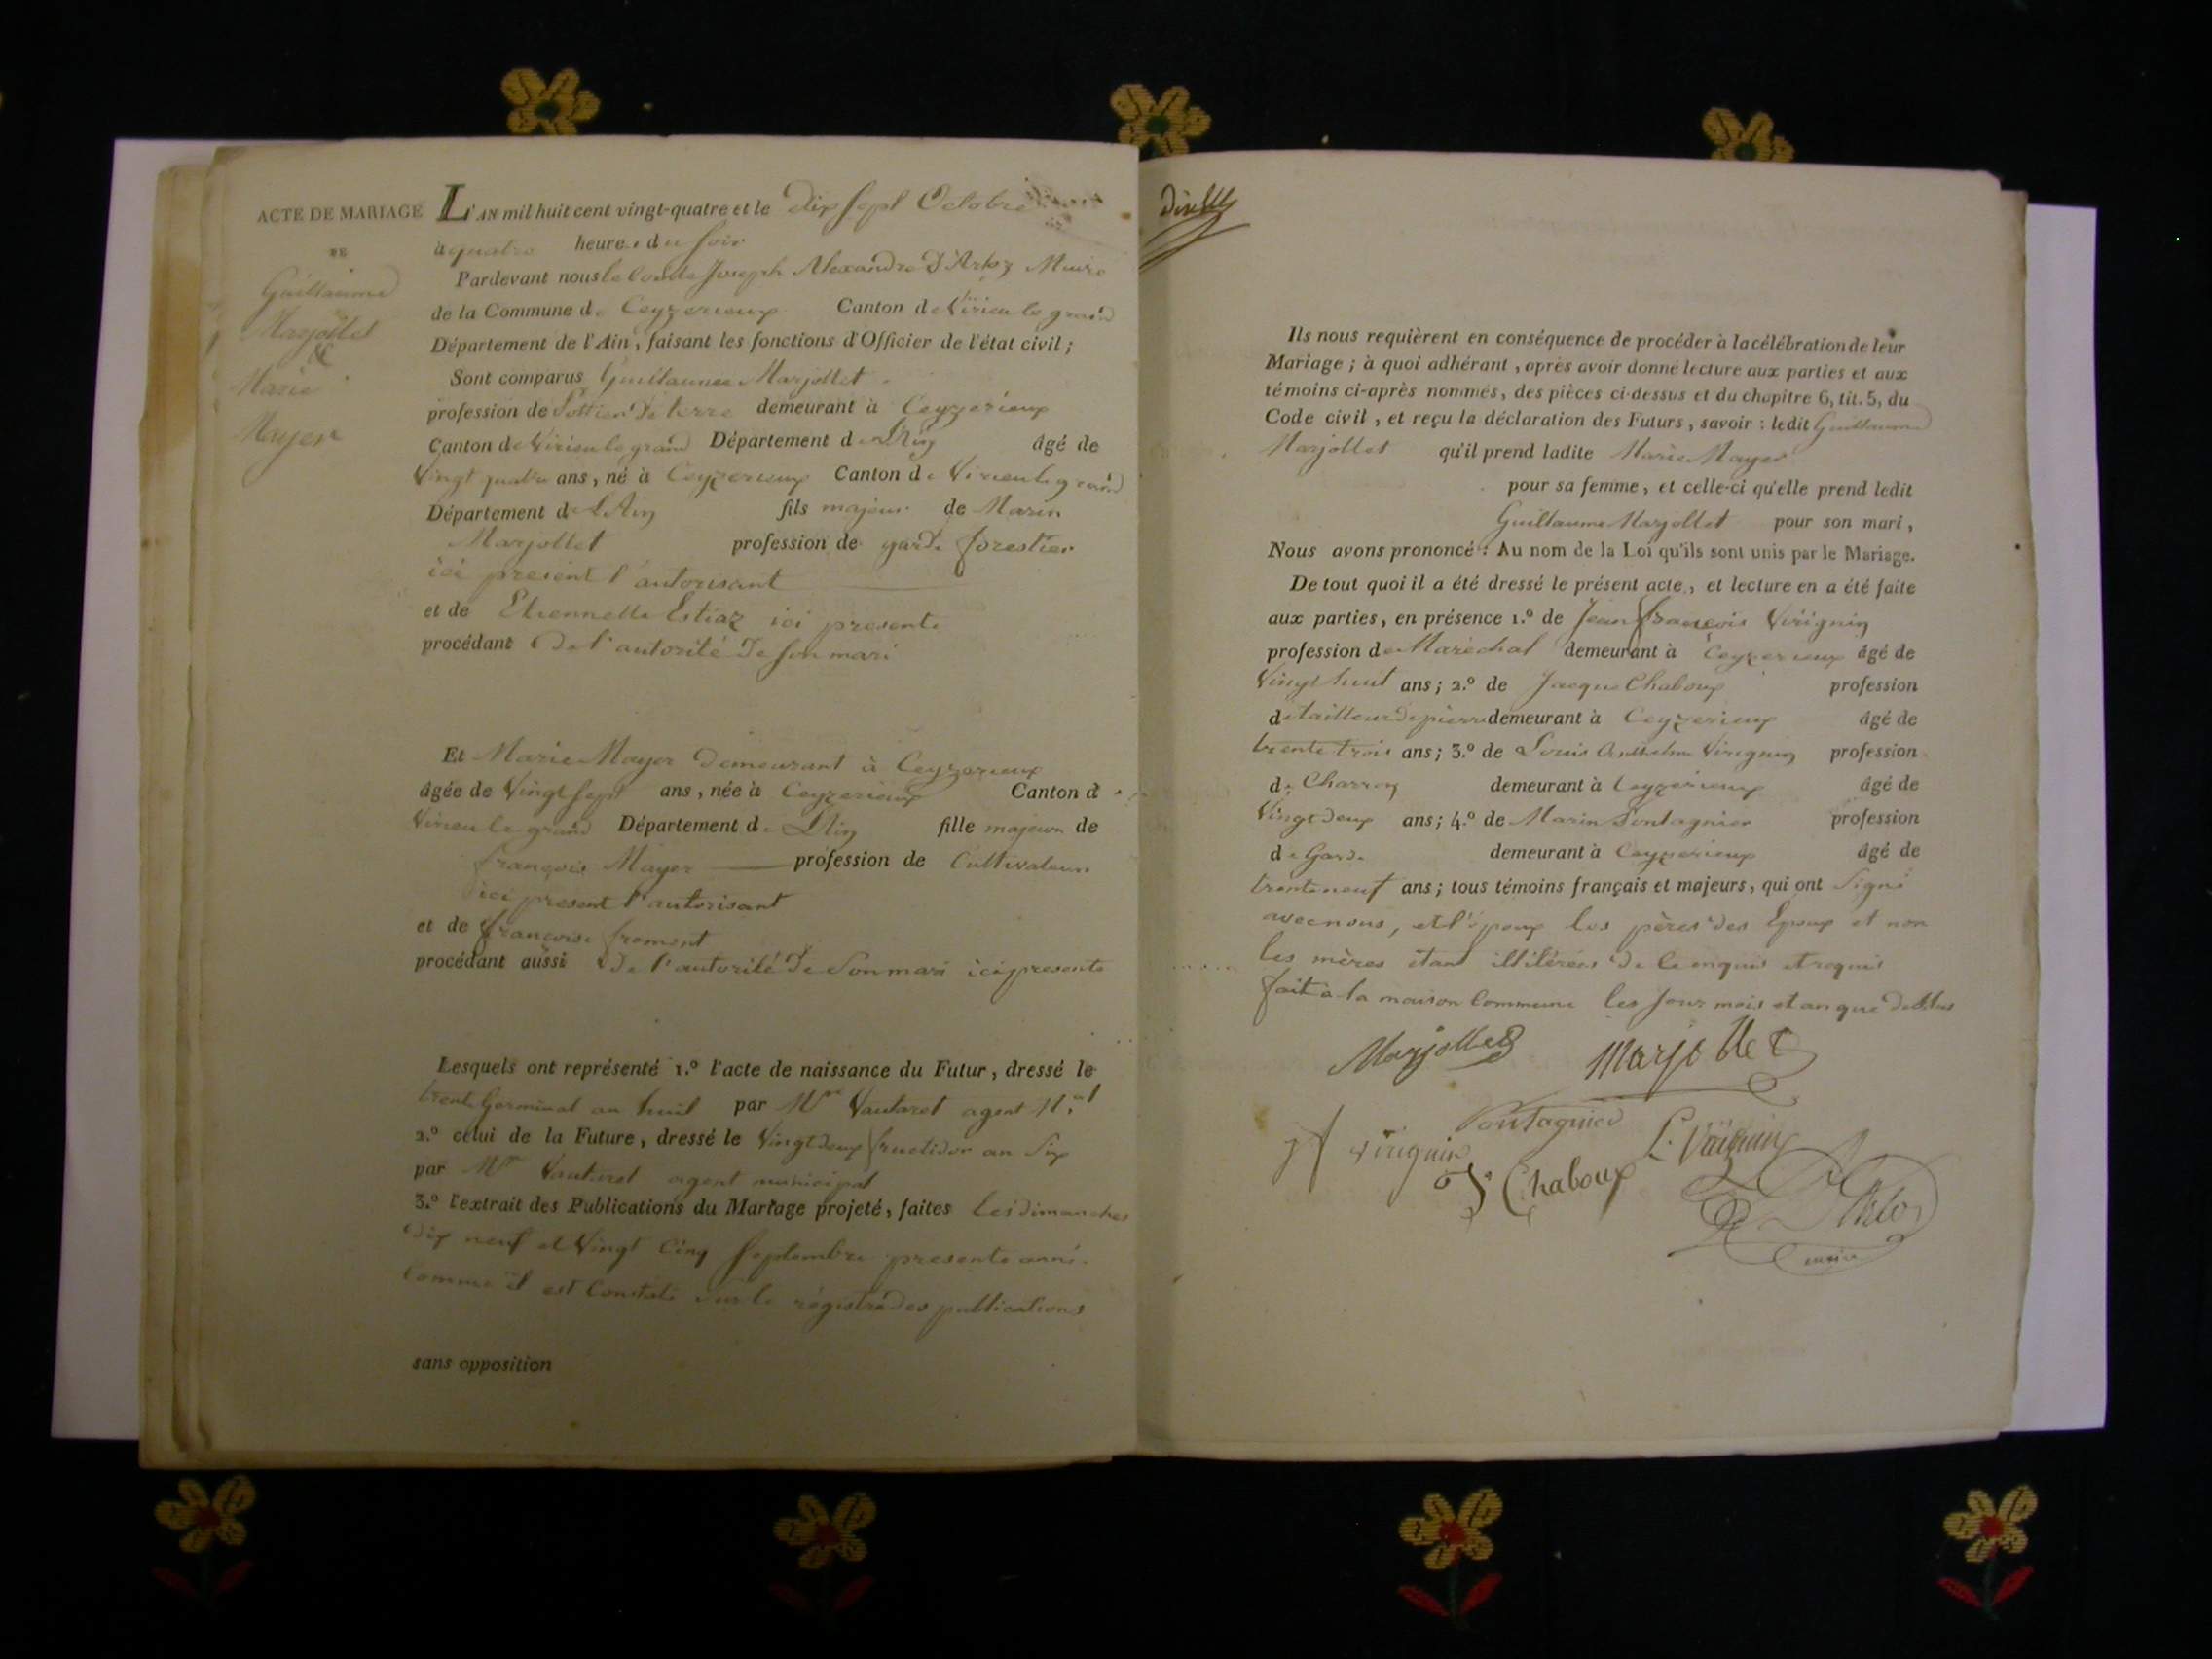 ACTE DE MARIAGE
DE
Guillaume
Marjollet
&
Marie
Mayer
L'AN mil huit cent vingt-quatre et le dix sept Octobre
à quatre heures du soir
Pardevant nous le Comte Joseph Alexandre D'Arloz Maire
de la Commune de Ceyzerieux Canton de Virieu le grand
Département de l'Ain, faisant les fonctions d'Officier de l'état civil;
Sont comparus Guillaume Marjollet
profession de Pottier de terre demeurant à Ceyzerieux
Canton de Virieu le grand Département de L'Ain âgé de
Vingt quatre ans, né à Ceyzerieux Canton de Virieu le grand
Département de L'Ain fils majeur de Marin
Marjollet profession de garde forestier
ici présent l'autorisant
et de Etiennette Estiaz ici presente
procédant de l'autorité de son mari
Et Marie Mayer demeurant à Ceyzerieux
âgée de Vingt sept ans, née à Ceyzerieux Canton d
Virieu le grand Département de L'Ain fille majeure de
françois Mayer profession de Cultivateur
ici present l'autorisant
et de françoise froment
procédant aussi de l'autorité de Son mari ici presente
Lesquels ont représenté 1.º l'acte de naissance du Futur, dressé le
trente Germinal an huit par Mr Vautaret agent M.al
2.º celui de la Future, dressé le Vingt deux fructidor an Six
par Mr Vautaret agent municipal
3.º l'extrait des Publications du Mariage projeté, faites les dimanches
dix neuf et Vingt Cinq Septembre presente année
comme il est Constaté sur le régistre des publications
sans opposition
Ils nous requièrent en conséquence de procéder à la célébration de leur
Mariage; à quoi adhérant, après avoir donné lecture aux parties et aux
témoins ci-après nommés, des pièces ci-dessus et du chapitre 6, tit. 5, du
Code civil, et reçu la déclaration des Futurs, savoir: ledit Guillaume
Marjollet qu'il prend ladite Marie Mayer
pour sa femme, et celle-ci qu'elle prend ledit
Guillaume Marjollet pour son mari,
Nous avons prononcé: Au nom de la Loi qu'ils sont unis par le Mariage.
De tout quoi il a été dressé le présent acte, et lecture en a été faite
aux parties, en présence 1.º de Jean françois Virignin
profession de Maréchal demeurant à Ceyzerieux âgé de
Vingt huit ans; 2.º de Jacque Chaboux profession
de tailleur de pierre demeurant à Ceyzerieux âgé de
trente trois ans; 3.º de Louis Anthelme Virignin profession
de Charron demeurant à Ceyzerieux âgé de
Vingt deux ans; 4.º de Marin Pontagnier profession
de Garde demeurant à Ceyzerieux âgé de
trente neuf ans; tous témoins français et majeurs, qui ont Signé
avec nous, et l'époux les pères des Epoux et non
les mères étant illitérées de ce enquis et requis
fait à la maison Commune les jour mois et an que dessus
Marjollet Marjollet
Pontagnier
jf virignin L. Virignin
J. Chaboux
maire